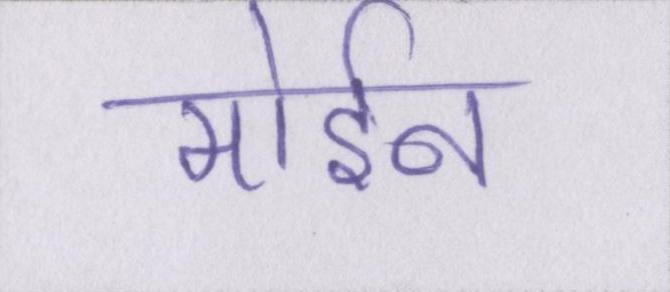 मोईन